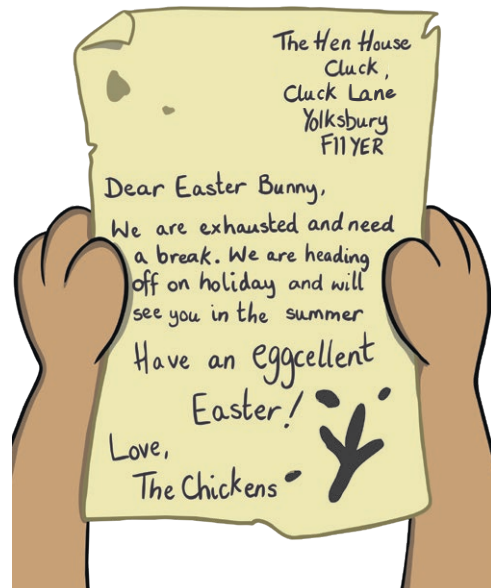 The Hen House
Cluck,
Cluck Lane
Yolksbury
F11 YER
Dear Easter Bunny,
We are exhausted and need
a break. We are heading
off on holiday and will
see you in the summer
Have an eggcellent
Easter!
Love,
The Chickens